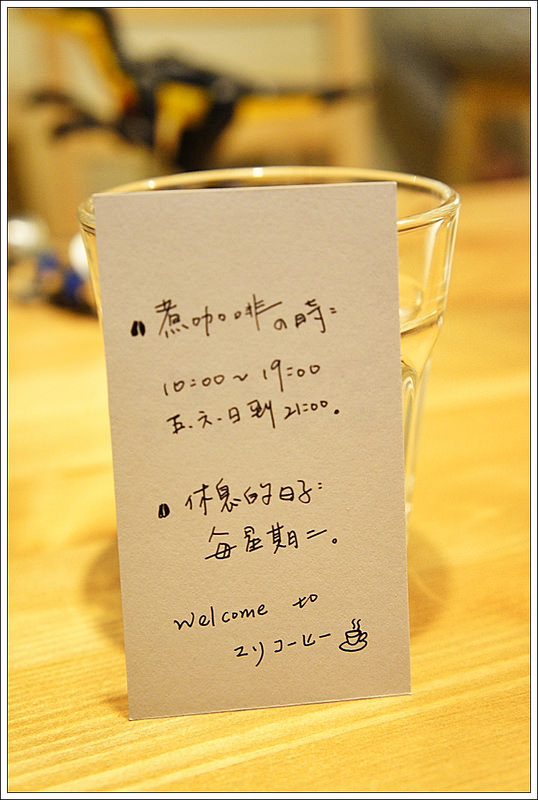 煮咖啡の時:
10:00~19:00
五.六.日到21:00。
休息的日子:
每星期二。
Welcome to
エリコーヒー